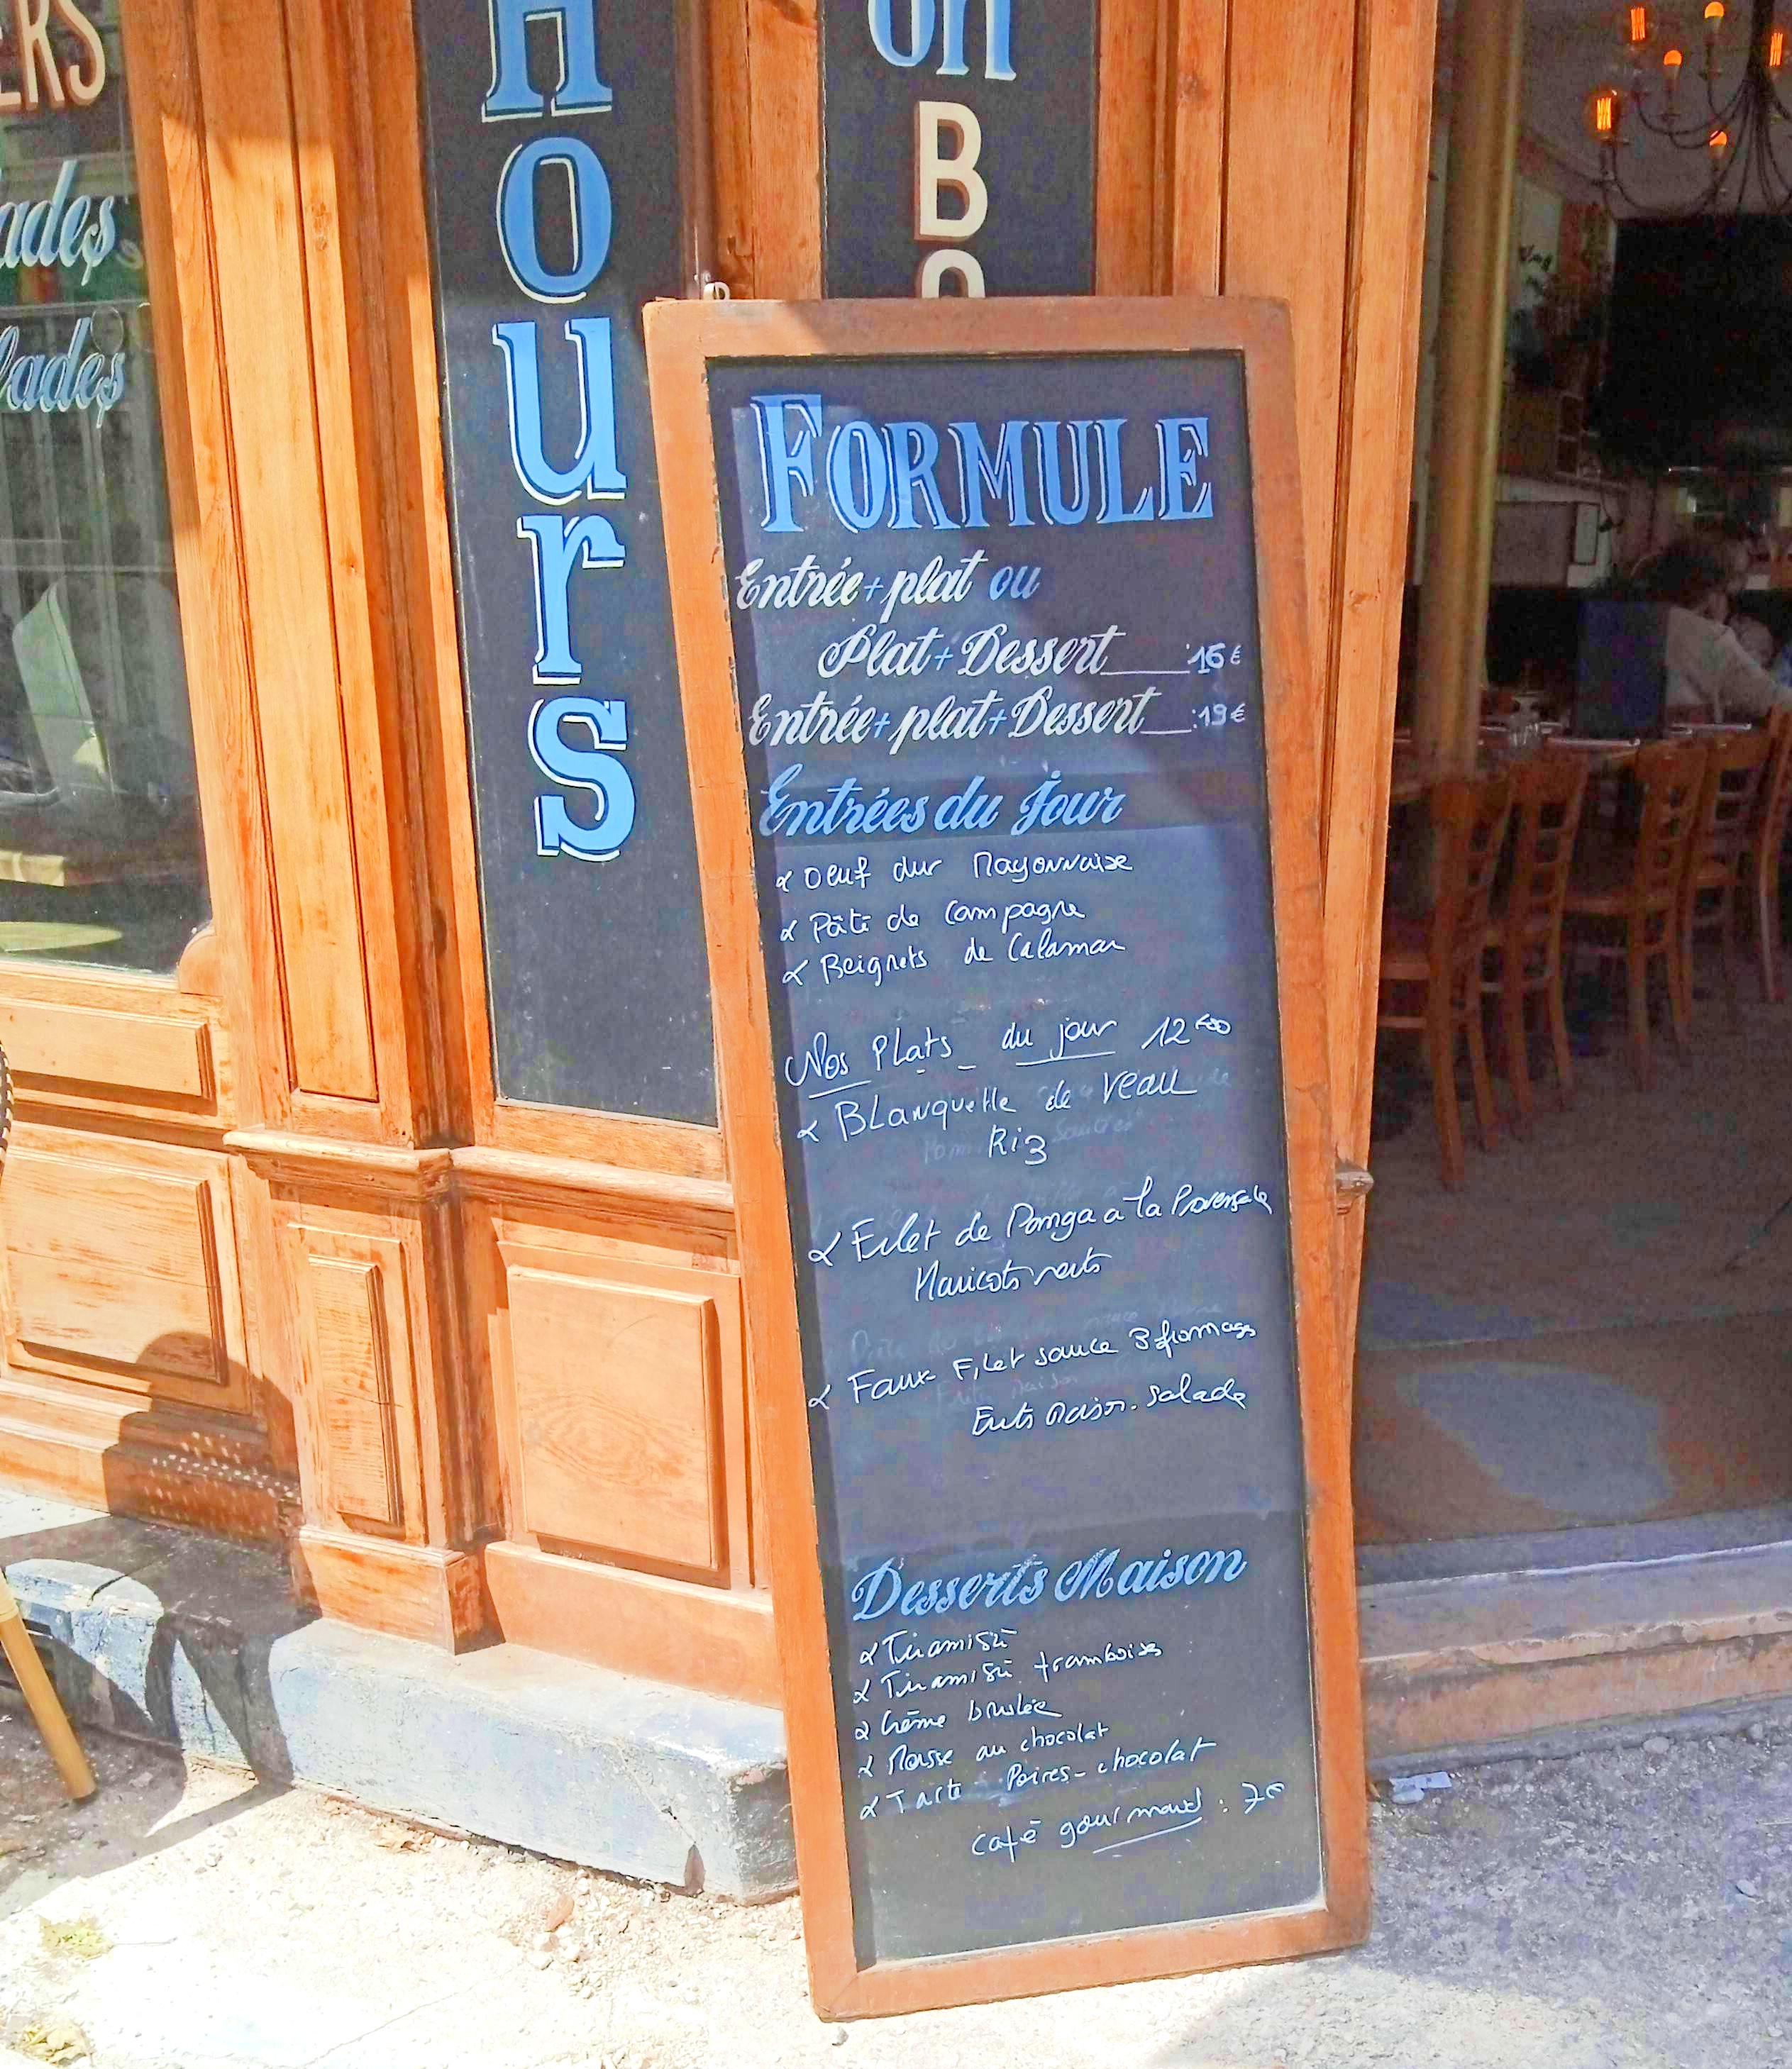 ERS
ades
lades
Hours
on
B
FORMULE
Entrée + plat ou
Plat + Dessert :16€
Entrée + plat + Dessert :19€
Entrées du Jour
oeuf dur Mayonnaise
Pâté de Campagne
Beignets de Calamar
Nos Plats du jour 12€00
BLanquette de veau
Riz
Filet de Panga a la Provençale
Haricots verts
Faux-Filet sauce 3 fromages
Frits Maison. salade
Desserts Maison
Tiramisù
Tiramisù framboises
Crème brulée
Mousse au chocolat
Tarte Poires-chocolat
café gourmand : 7€